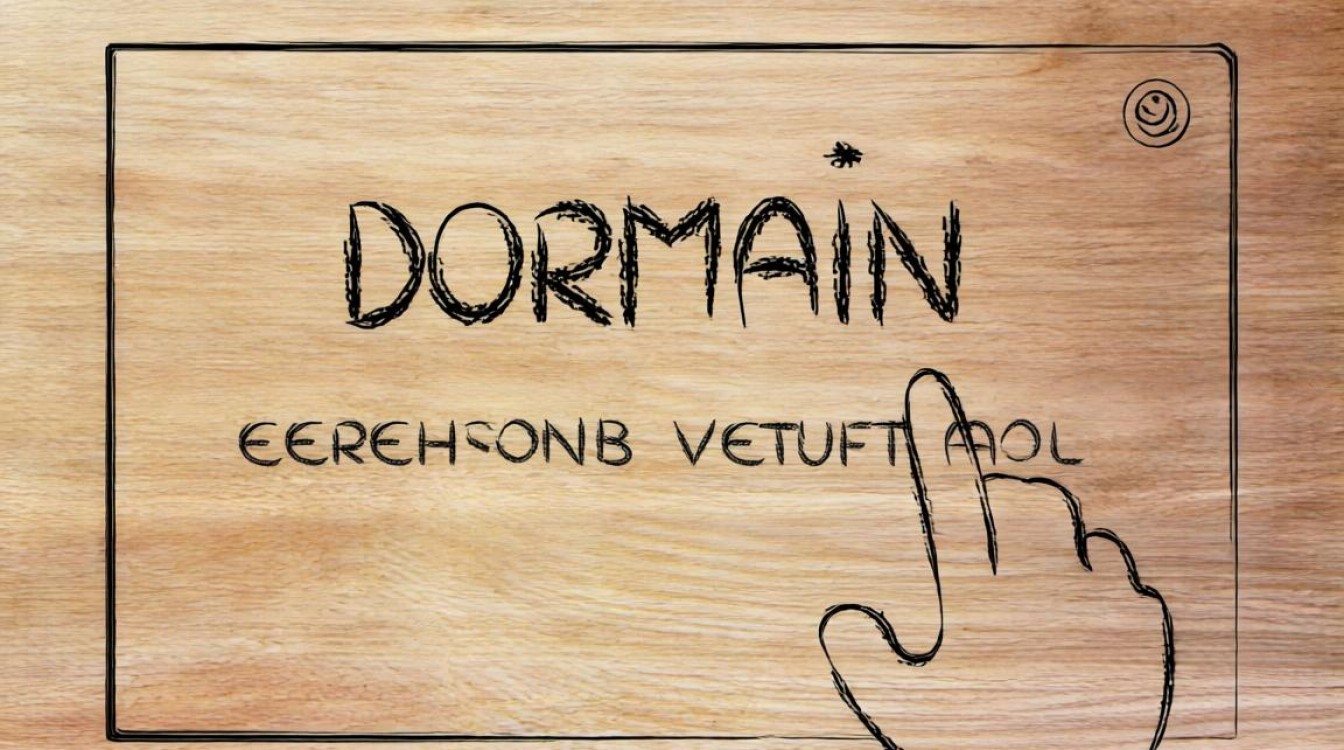 DORMAIN
EEREHSONB VETUFT AOL